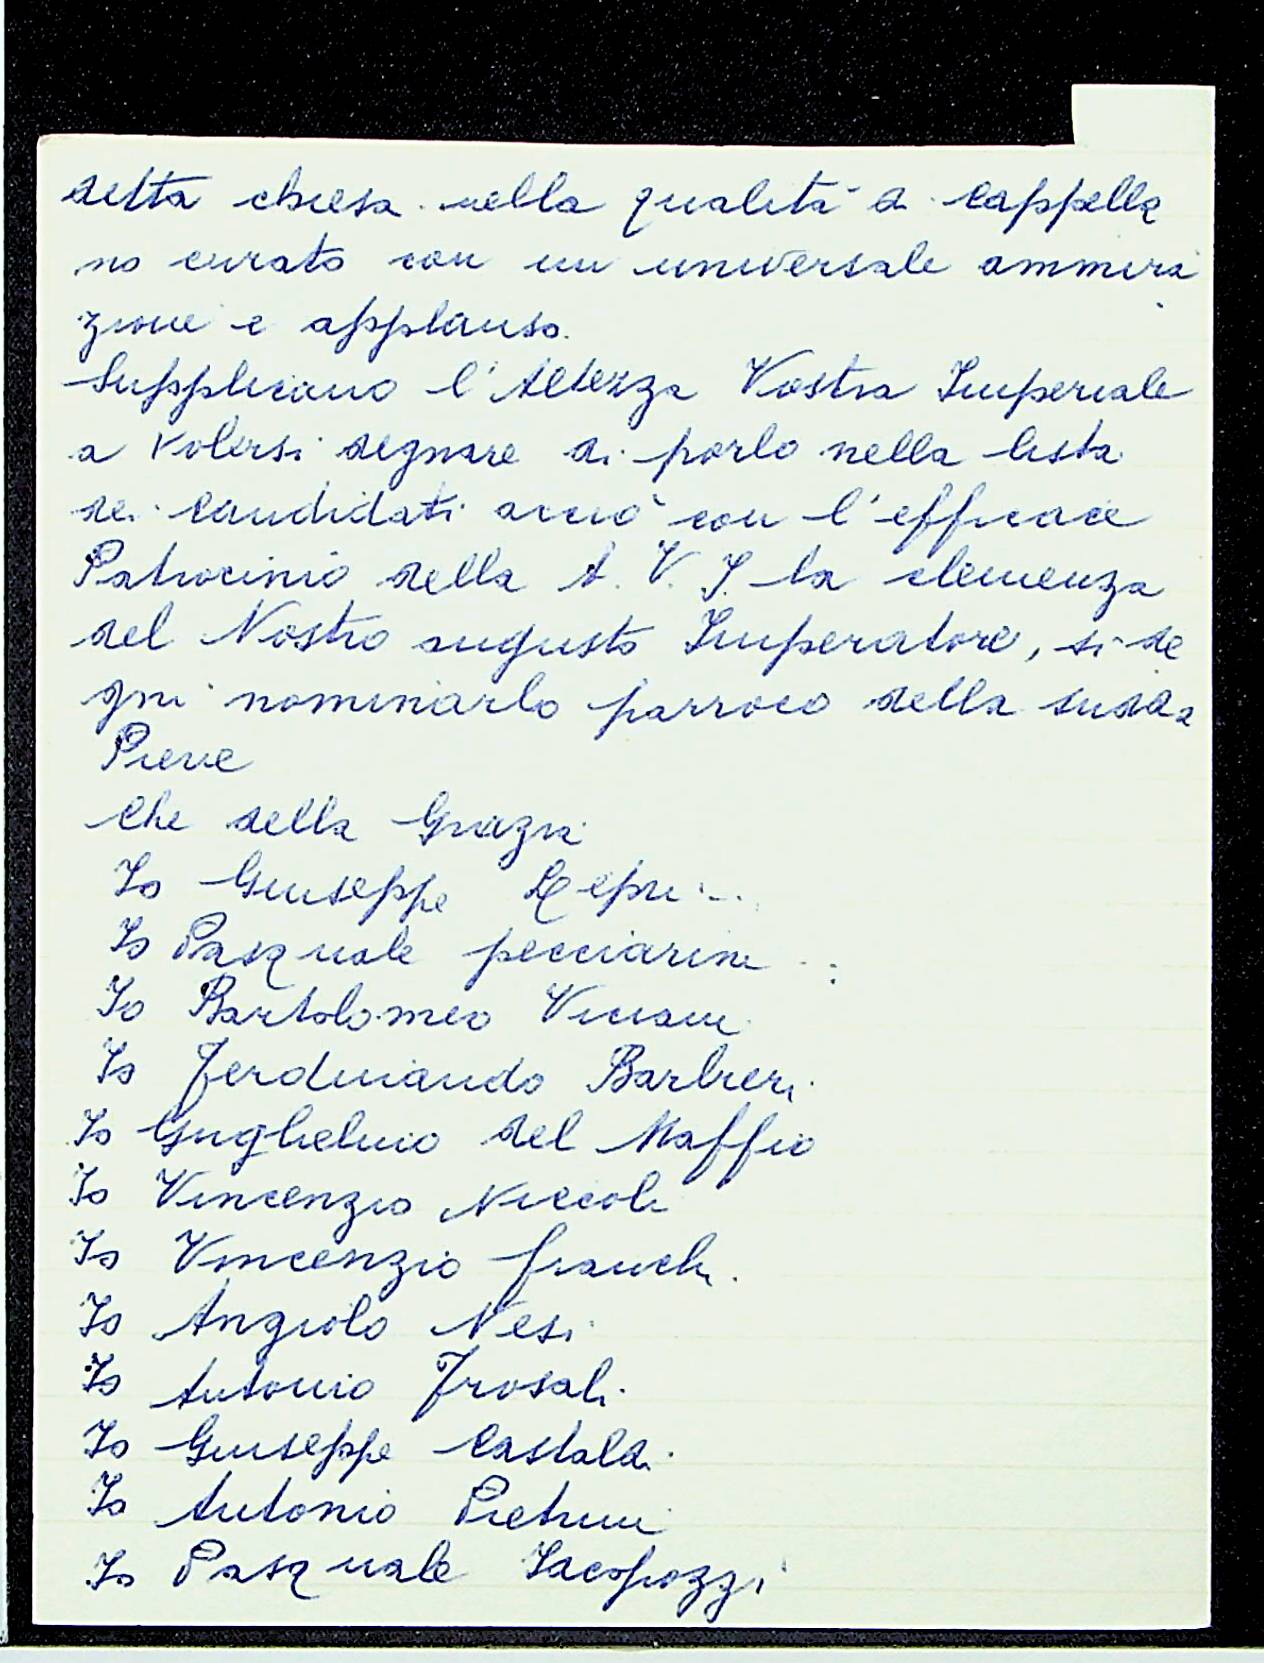 detta chiesa nella qualità di Cappella
no curato con un universale ammira
zione e applauso.
Supplicano l'Altezza Vostra Imperiale
a volersi degnare di porlo nella lista
dei Candidati acciò con l'efficace
Patrocinio della A. V. I. la clemenza
del Nostro augusto Imperatore, si de
gni nominarlo parroco della sudda
Pieve
Che della Grazia
Io Giuseppe Lepri
Io Pasquale pecciarini
Io Bartolomeo Viviani
Io Ferdinando Barbieri
Io Guglielmo del Maffio
Io Vincenzio Niccoli
Io Vincenzio franchi.
Io Angiolo Nesi
Io Antonio Frosali
Io Giuseppe Castaldi
Io Antonio Pietrini
Io Pasquale Iacopozzi